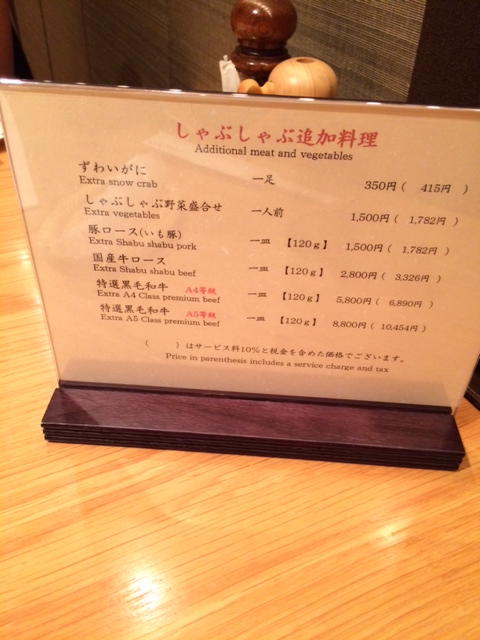 しゃぶしゃぶ追加料理
Additional meat and vegetables
ずわいがに 一足 350円( 415円 )
Extra snow crab
しゃぶしゃぶ野菜盛合せ 一人前 1,500円( 1,782円 )
Extra vegetables
豚ロース(いも豚) 一皿 【120g】 1,500円( 1,782円 )
Extra Shabu shabu pork
国産牛ロース 一皿 【120g】 2,800円( 3,326円 )
Extra Shabu shabu beef
特選黒毛和牛 A4等級 一皿 【120g】 5,800円( 6,890円 )
Extra A4 Class premium beef
特選黒毛和牛 A5等級 一皿 【120g】 8,800円( 10,454円 )
Extra A5 Class premium beef
( )はサービス料10%と税金を含めた価格でございます。
Price in parenthesis includes a service charge and tax